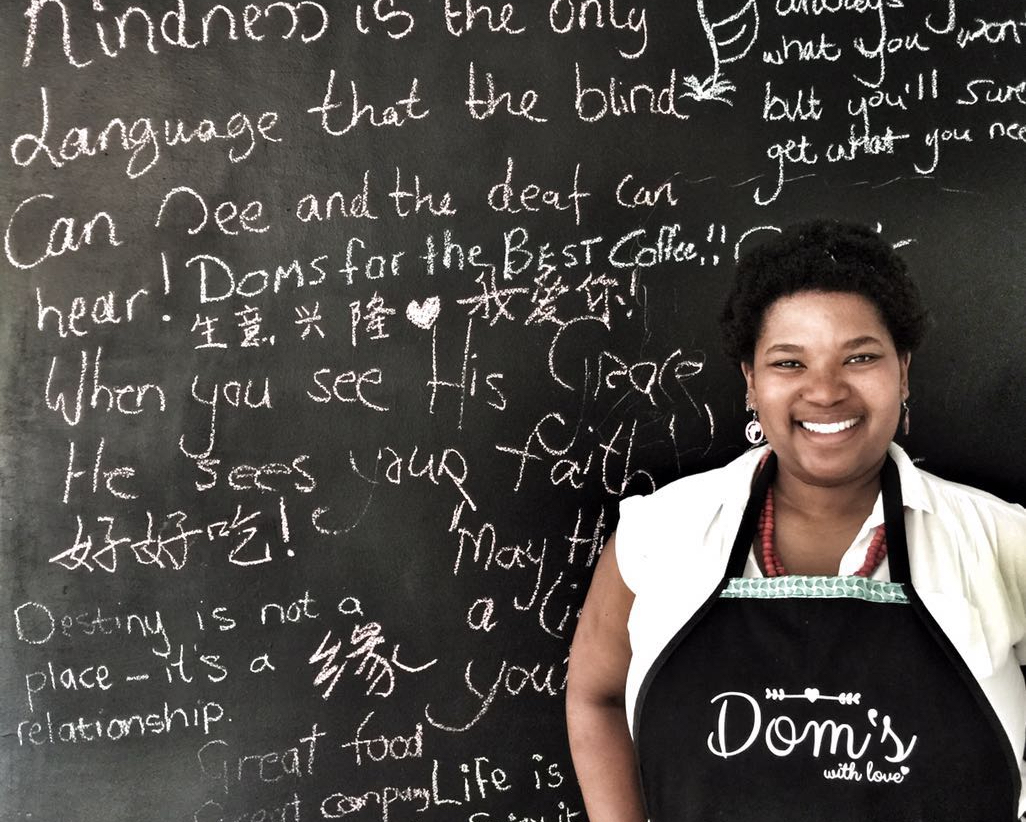 Kindness is the only
Language that the blind
Can See and the deaf can
hear!
DOMS for the BEST Coffee!!
生意兴隆♥我爱你!
When you see His Grace
He sees your faith
好好吃!
Destiny is not a
place - it's a
relationship.
缘
Great food
Great company
always
what you won't
but you'll sure
get what you nee
May
a
your
LiFe is
Enjoy it
Dom's
with love